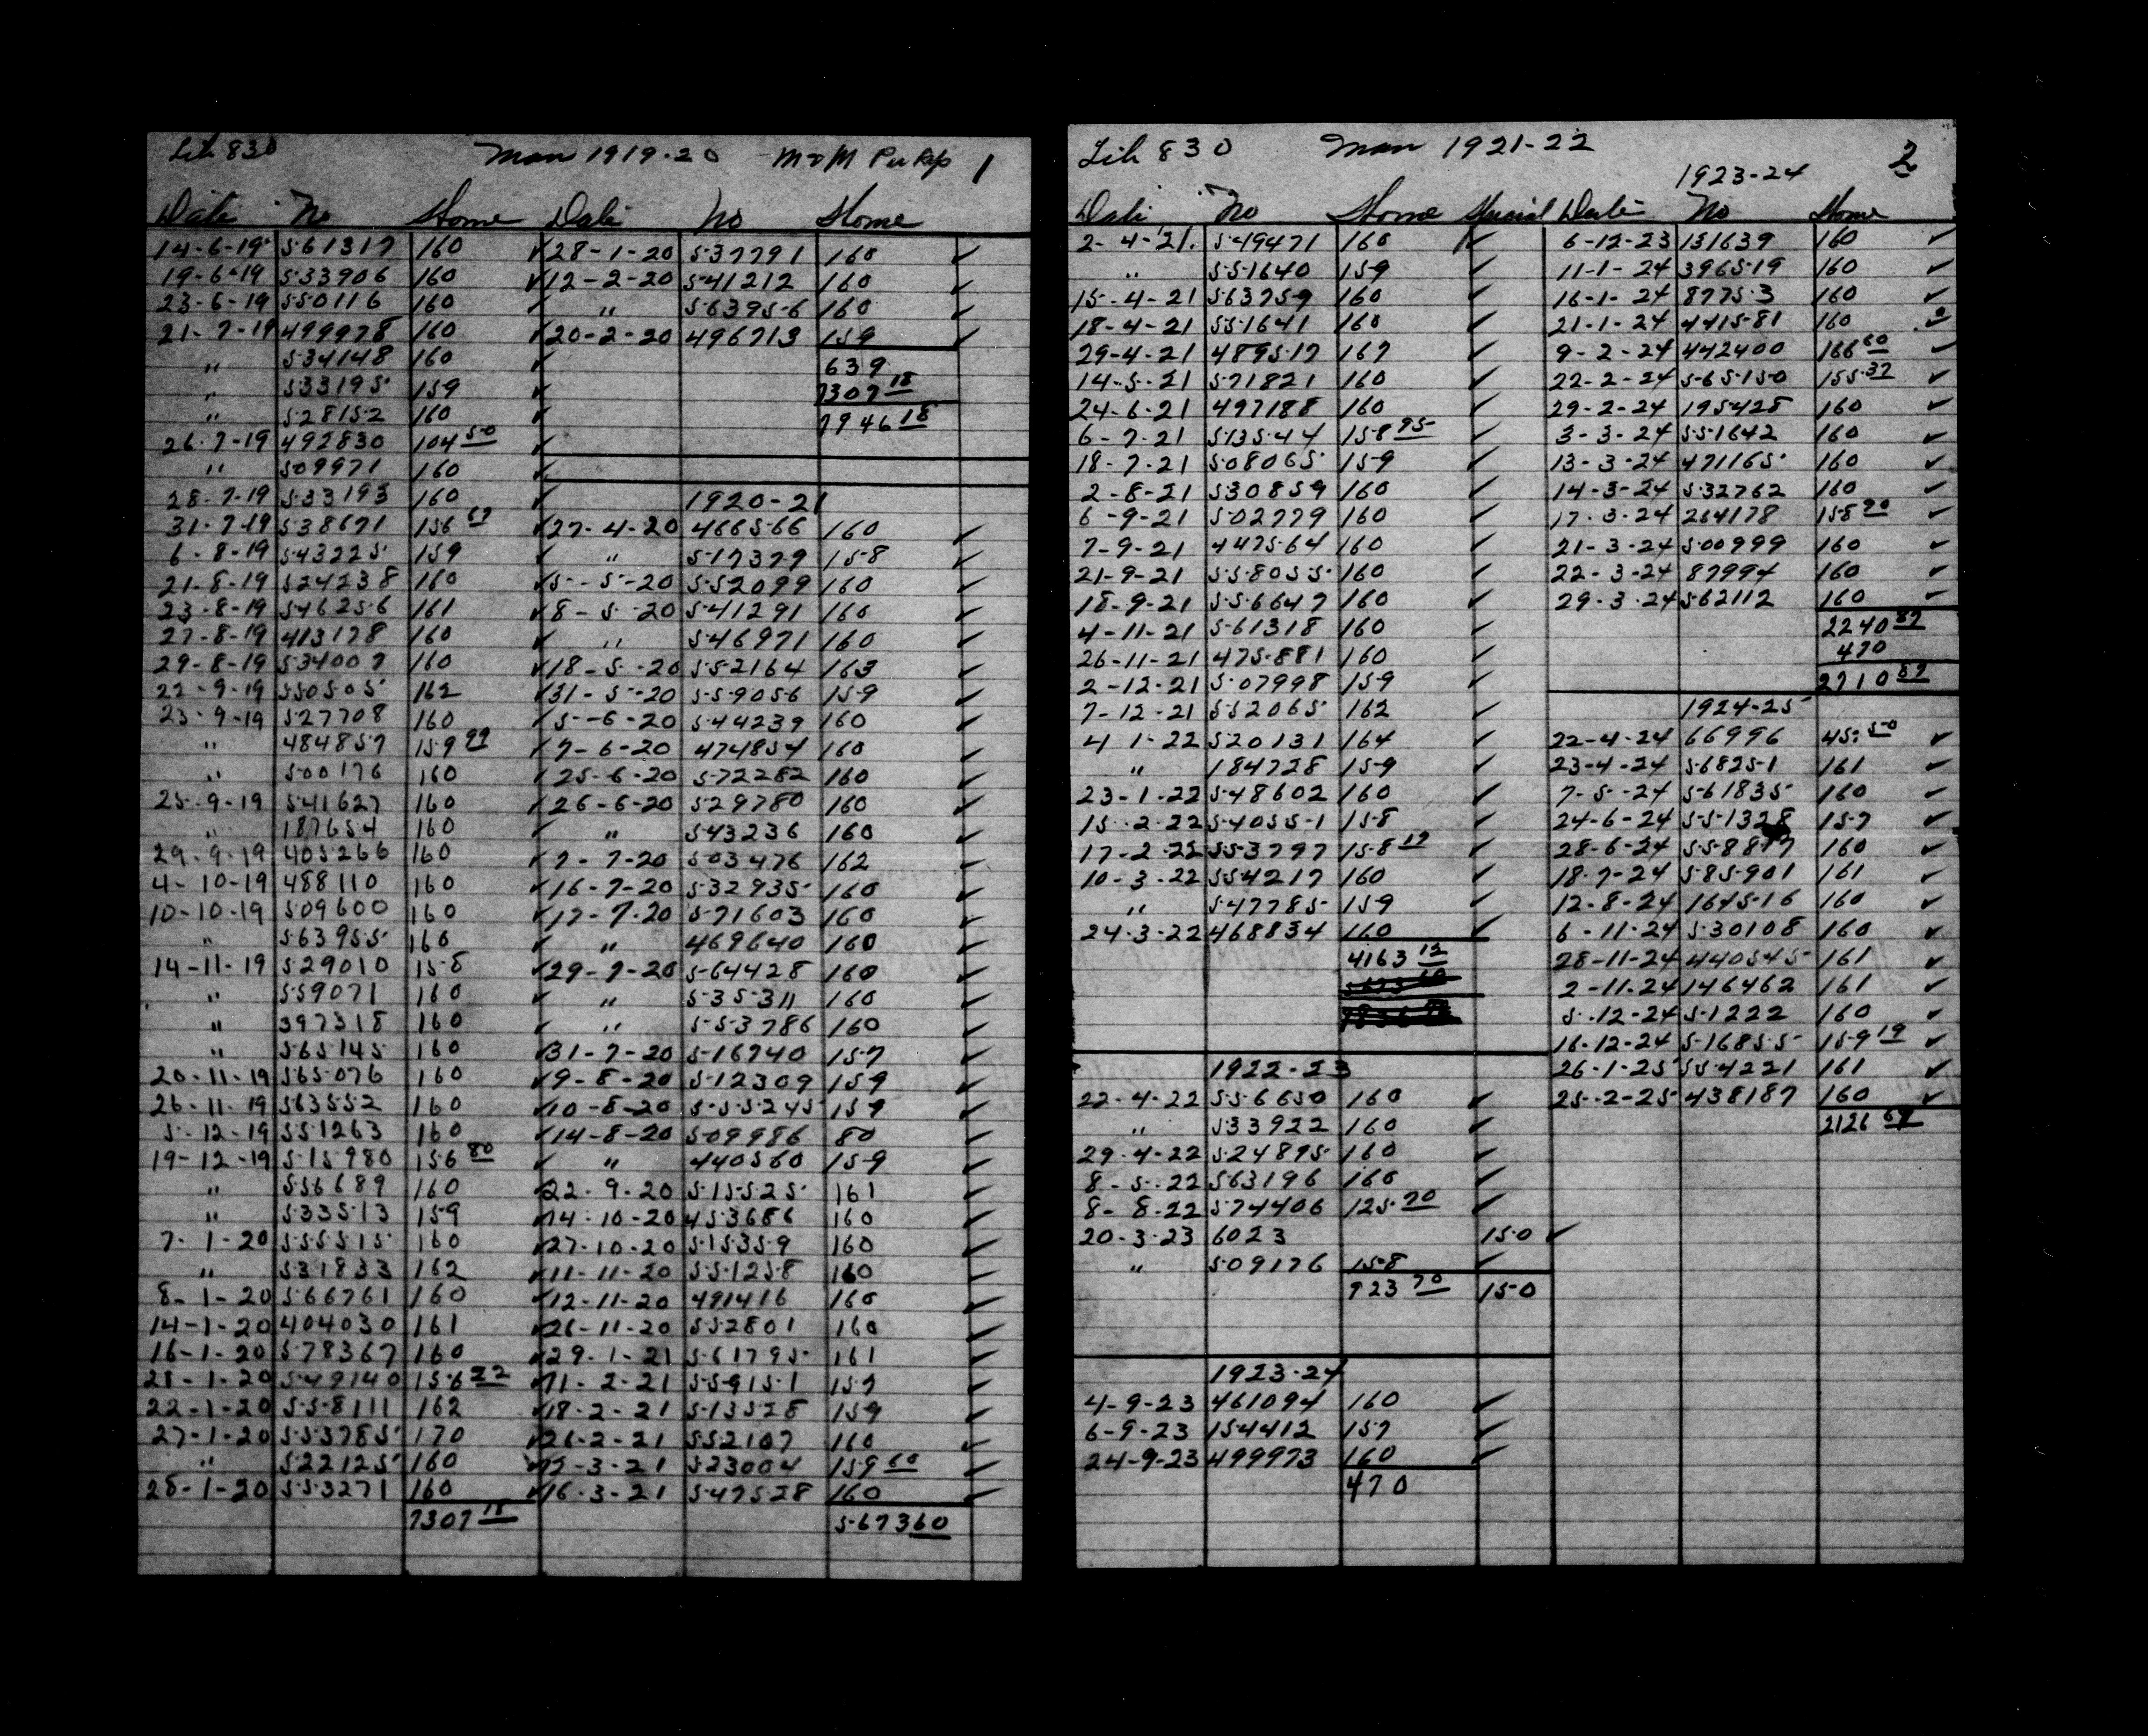 Lih 830 Man 1919-20 M&M Pu Rep 1
Date No Home Date No Home
14-6-19 561317 160 ✓ 28-1-20 537791 160 ✓
19-6-19 533906 160 ✓ 12-2-20 541212 160 ✓
23-6-19 550116 160 ✓ " 563956 160 ✓
21-7-19 499978 160 ✓ 20-2-20 496713 159 ✓
" 534148 160 ✓ 639
" 533195 159 ✓ 7307 18
" 528152 160 ✓ 7946 18
26-7-19 492830 104 50 ✓
" 509971 160 ✓
28-7-19 533193 160 ✓ 1920-21
31-7-19 538671 156 67 ✓ 27-4-20 466566 160 ✓
6-8-19 543225 159 ✓ " 517379 158 ✓
21-8-19 524238 160 ✓ 5-5-20 552099 160 ✓
23-8-19 546256 161 ✓ 8-5-20 541291 160 ✓
27-8-19 413178 160 ✓ " 546971 160 ✓
29-8-19 534007 160 ✓ 18-5-20 552164 163 ✓
22-9-19 550505 162 ✓ 31-5-20 559056 159 ✓
23-9-19 527708 160 ✓ 5-6-20 544239 160 ✓
" 484857 159 99 ✓ 7-6-20 474854 160 ✓
" 500176 160 ✓ 25-6-20 572282 160 ✓
25-9-19 541627 160 ✓ 26-6-20 529780 160 ✓
" 187654 160 ✓ " 543236 160 ✓
29-9-19 405266 160 ✓ 7-7-20 503476 162 ✓
4-10-19 488110 160 ✓ 16-7-20 532935 160 ✓
10-10-19 509600 160 ✓ 17-7-20 571603 160 ✓
" 563955 160 ✓ " 469640 160 ✓
14-11-19 529010 158 ✓ 29-7-20 564428 160 ✓
" 559071 160 ✓ " 535311 160 ✓
" 397318 160 ✓ " 553786 160 ✓
" 565145 160 ✓ 31-7-20 516740 157 ✓
20-11-19 565076 160 ✓ 9-8-20 512309 159 ✓
26-11-19 563552 160 ✓ 10-8-20 555245 159 ✓
5-12-19 551263 160 ✓ 14-8-20 509986 80 ✓
19-12-19 515980 156 80 ✓ " 440560 159 ✓
" 556689 160 ✓ 22-9-20 515525 161 ✓
" 533513 159 ✓ 14-10-20 453686 160 ✓
7-1-20 555515 160 ✓ 27-10-20 515359 160 ✓
" 531833 162 ✓ 11-11-20 551258 160 ✓
8-1-20 566761 160 ✓ 12-11-20 491416 160 ✓
14-1-20 404030 161 ✓ 26-11-20 552801 160 ✓
16-1-20 578367 160 ✓ 29-1-21 561795 161 ✓
21-1-20 549140 156 22 ✓ 11-2-21 559151 157 ✓
22-1-20 558111 162 ✓ 18-2-21 513528 159 ✓
27-1-20 553785 170 ✓ 26-2-21 552107 160 ✓
" 522125 160 ✓ 3-21 523004 159 60 ✓
28-1-20 553271 160 ✓ 16-3-21 547528 160 ✓
7307 18 5673 60
Lih 830 Man 1921-22 2
1923-24
Date No Home Special Date No Home
2-4-21 549471 160 ✓ 6-12-23 131639 160 ✓
" 551640 159 ✓ 11-1-24 396519 160 ✓
15-4-21 563759 160 ✓ 16-1-24 87753 160 ✓
18-4-21 551641 160 ✓ 21-1-24 441581 160 ✓
29-4-21 489517 167 ✓ 9-2-24 442400 166 60 ✓
14-5-21 571821 160 ✓ 22-2-24 565150 155 37 ✓
24-6-21 497188 160 ✓ 29-2-24 195428 160 ✓
6-7-21 513544 158 95 ✓ 3-3-24 551642 160 ✓
18-7-21 508065 159 ✓ 13-3-24 471165 160 ✓
2-8-21 530859 160 ✓ 14-3-24 532762 160 ✓
6-9-21 502779 160 ✓ 17-3-24 264178 158 90 ✓
7-9-21 447564 160 ✓ 21-3-24 500999 160 ✓
21-9-21 558055 160 ✓ 22-3-24 87994 160 ✓
18-9-21 556647 160 ✓ 29-3-24 562112 160 ✓
4-11-21 561318 160 ✓ 2240 87
26-11-21 475881 160 ✓ 470
2-12-21 507998 159 ✓ 2710 87
7-12-21 552065 162 ✓ 1924-25
4-1-22 520131 164 ✓ 22-4-24 66996 45 50 ✓
" 184728 159 ✓ 23-4-24 568251 161 ✓
23-1-22 548602 160 ✓ 7-5-24 561835 160 ✓
15-2-22 540551 158 ✓ 24-6-24 551328 157 ✓
17-2-22 553797 158 17 ✓ 28-6-24 160 ✓
10-3-22 554217 160 ✓ 18-7-24 585901 161 ✓
" 547785 159 ✓ 12-8-24 164516 160 ✓
24-3-22 468834 160 ✓ 6-11-24 530108 160 ✓
4163 12 28-11-24 440545 161 ✓
2-11-24 146462 161 ✓
5-12-24 51222 160 ✓
16-12-24 516855 159 19 ✓
1922-23 26-1-25 554221 161 ✓
22-4-22 556650 160 ✓ 25-2-25 438187 160 ✓
" 533922 160 ✓ 2126 69
29-4-22 524895 160 ✓
8-5-22 563196 160 ✓
8-8-22 574406 125 70 ✓
20-3-23 6023 150 ✓
" 509176 158 ✓
923 70 150
1923-24
4-9-23 461094 160 ✓
6-9-23 154412 157 ✓
24-9-23 499973 160 ✓
470